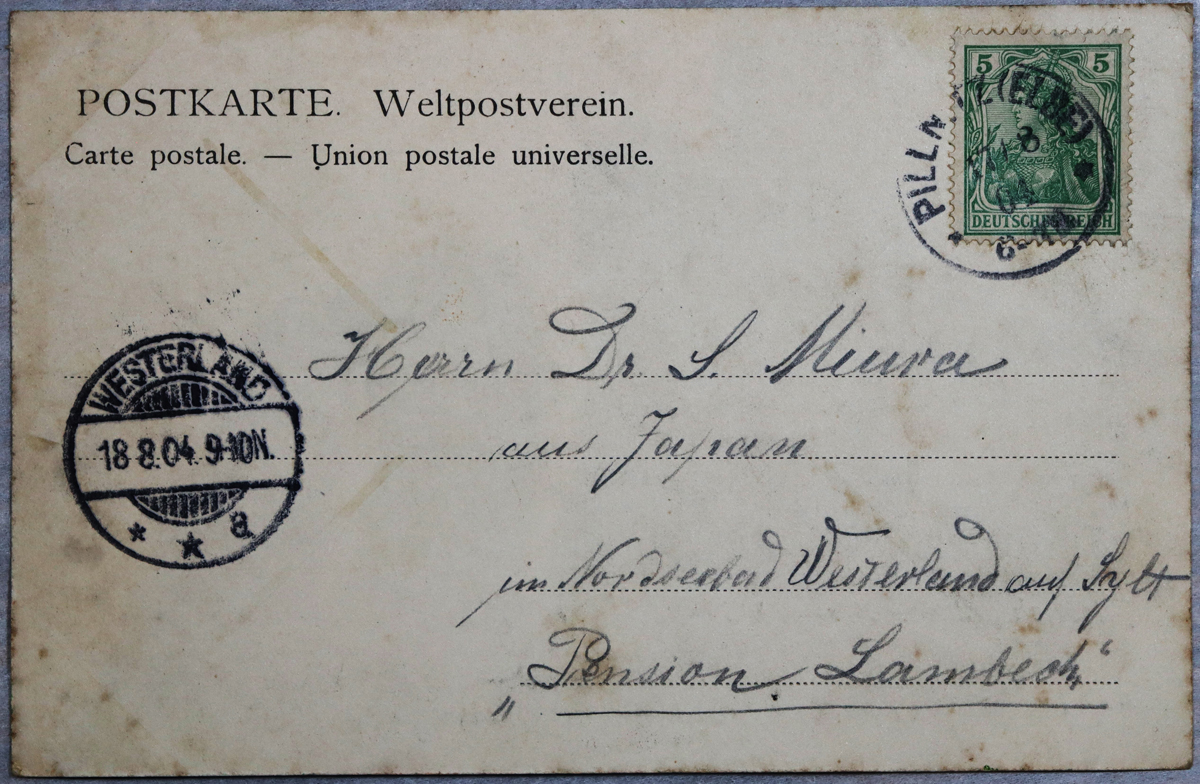 POSTKARTE. Weltpostverein.
Carte postale. — Union postale universelle.
5 5
DEUTSCHES REICH
PILLN (ELBE)
8
04
Herrn Dr S. Miura
aus Japan
WESTERLAND
18 8.04. 9-10N.
* * a
im Nordseebad Westerland auf Sylt
„Pension Lambeck“